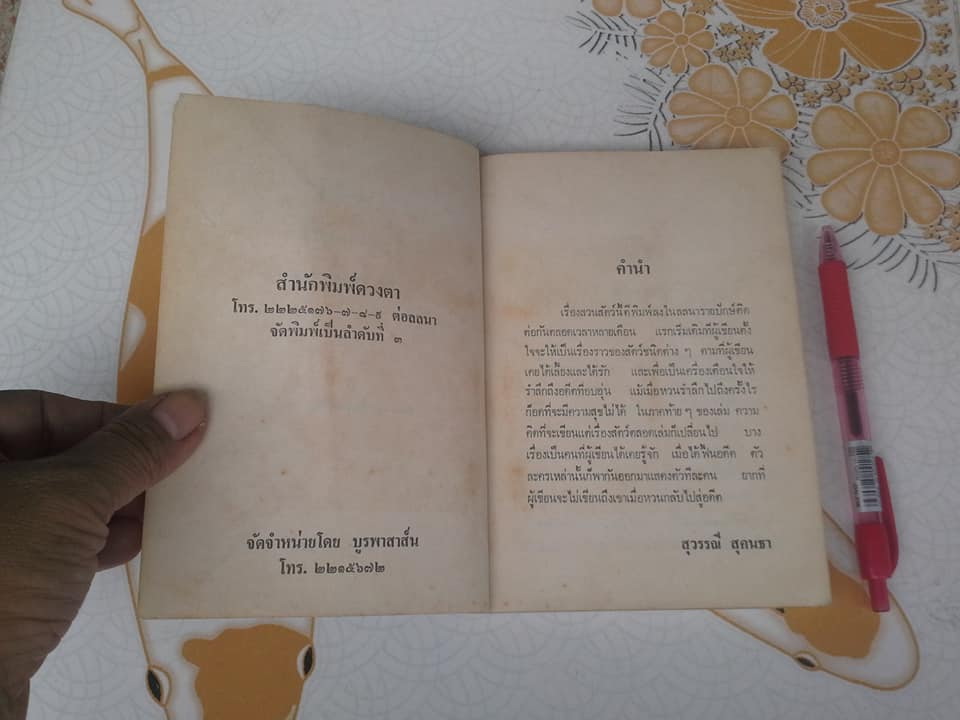 สำนักพิมพ์ดวงตา
โทร. ๒๒๒๕๑๗๖-๗-๘-๙ ต่อลลนา
จัดพิมพ์เป็นลำดับที่ ๓
จัดจำหน่ายโดย บูรพาสาส์น
โทร. ๒๒๑๕๖๗๒
คำนำ
เรื่องสวนสัตว์นี้ตีพิมพ์ลงในลลนารายปักษ์ติด
ต่อกันตลอดเวลาหลายเดือน แรกเริ่มเดิมทีผู้เขียนตั้ง
ใจจะให้เป็นเรื่องราวของสัตว์ชนิดต่าง ๆ ตามที่ผู้เขียน
เคยได้เลี้ยงและได้รัก และเพื่อเป็นเครื่องเตือนใจให้
รำลึกถึงอดีตที่อบอุ่น แม้เมื่อหวนรำลึกไปถึงครั้งไร
ก็อดที่จะมีความสุขไม่ได้ ในภาคท้าย ๆ ของเล่ม ความ
คิดที่จะเขียนแต่เรื่องสัตว์ตลอดเล่มก็เปลี่ยนไป บาง
เรื่องเป็นคนที่ผู้เขียนได้เคยรู้จัก เมื่อได้ฟื้นอดีต ตัว
ละครเหล่านั้นก็พากันออกมาแสดงตัวทีละคน ยากที่
ผู้เขียนจะไม่เขียนถึงเขาเมื่อหวนกลับไปสู่อดีต
สุวรรณี สุคนธา